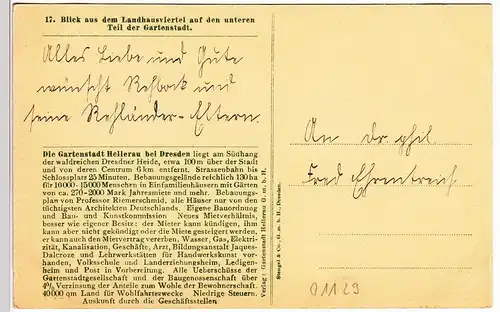 17. Blick aus dem Landhausviertel auf den unteren
Teil der Gartenstadt.
Alles Liebe und Gute
wünscht Rehbock und
seine Rehländer-Eltern.
Die Gartenstadt Hellerau bei Dresden liegt am Südhang
der waldreichen Dresdner Heide, etwa 100 m über der Stadt
und von deren Centrum 6 km entfernt. Strassenbahn bis
Schlossplatz 25 Minuten. Bebauungsgelände reichlich 130 ha
für 10000–15000 Menschen in Einfamilienhäusern mit Gärten
von ca. 270–2000 Mark Jahresmiete und mehr. Bebauungs-
plan von Professor Riemerschmid, alle Häuser nur von den
tüchtigsten Architekten Deutschlands. Eigene Bauordnung
und Bau- und Kunstkommission Neues Mietverhältnis,
besser wie eigener Besitz: der Mieter kann kündigen, ihm
kann aber nicht gekündigt oder die Miete gesteigert werden,
er kann auch den Mietvertrag vererben. Wasser, Gas, Elektri-
zität, Kanalisation, Geschäfte, Arzt, Bildungsanstalt Jaques-
Dalcroze und Lehrwerkstätten für Handwerkskunst vor-
handen, Volksschule und Landerziehungsheim, Ledigen-
heim und Post in Vorbereitung. Alle Ueberschüsse der
Gartenstadtgesellschaft und der Baugenossenschaft über
4% Verzinsung der Anteile zum Wohle der Bewohnerschaft.
40000 qm Land für Wohlfahrtszwecke Niedrige Steuern.
Auskunft durch die Geschäftsstellen
Verlag: Gartenstadt Hellerau G. m. b. H.
Stengel & Co., G. m. b. H., Dresden.
An Dr. phil.
Fred Ehrentreich
01129